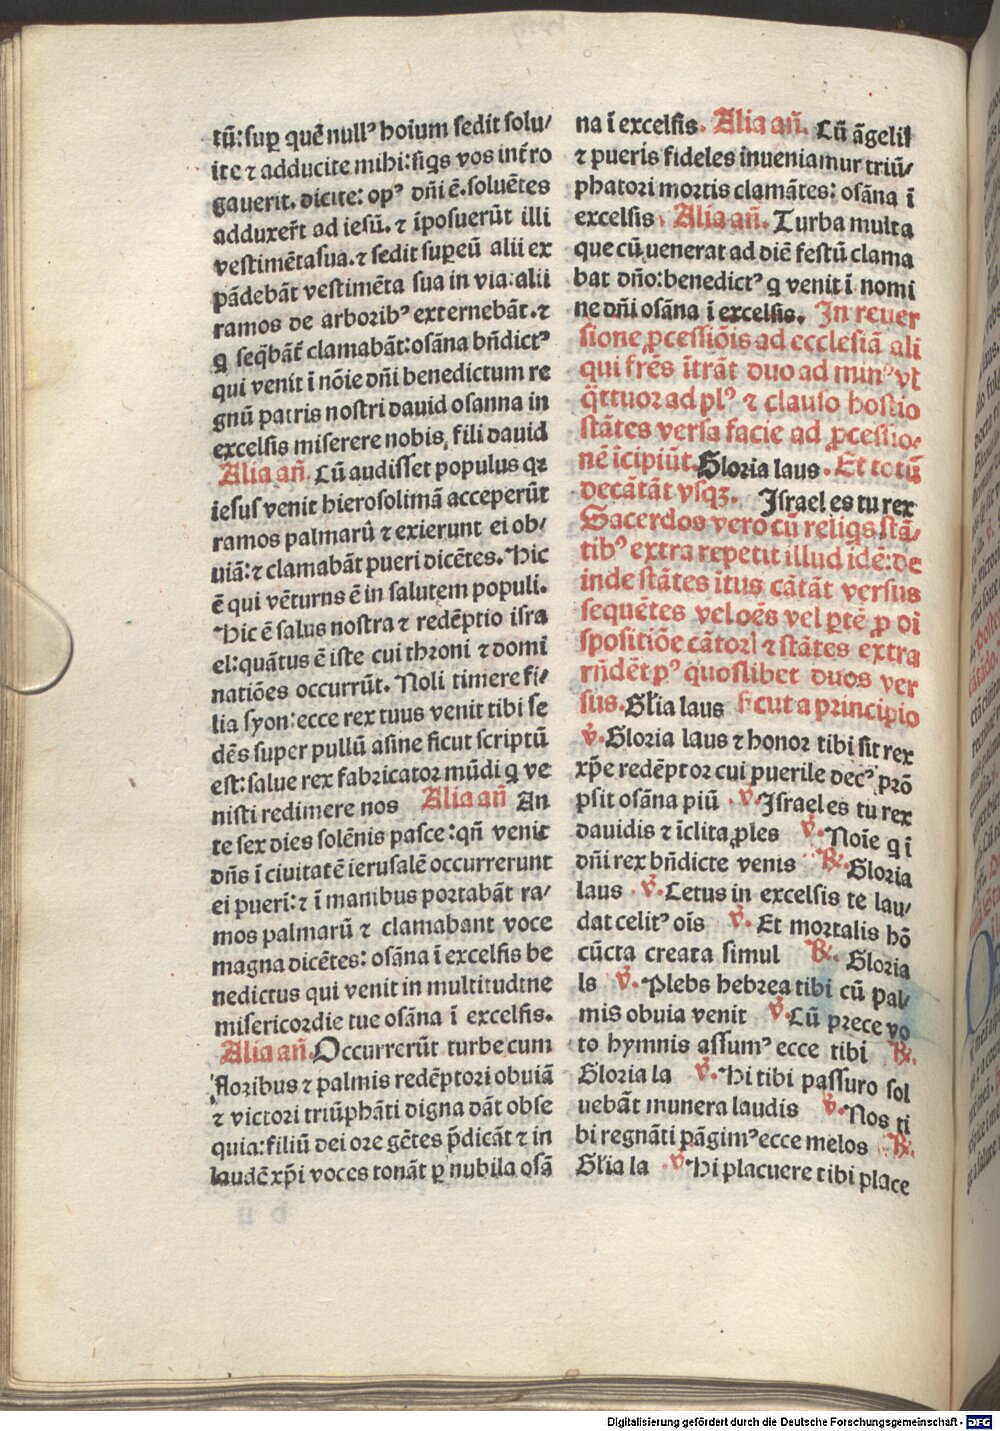 tū: suꝑ quē nullꝰ hoīum sedit solu/
ite ⁊ adducite mihi: siqͥs vos int̄ro
gauerit. dicite: opꝰ dn̄i ē. soluētes
adduxer̄t ad iesū. ⁊ īposuerūt illi
vestimēta sua. ⁊ sedit suꝑ eū alii ex
pādebāt vestimēta sua in via: alii
ramos de arboribꝰ externebāt. ⁊
q̄ seq̄bāt̄ clamabāt: osāna bn̄dictꝰ
qui venit ī nōie dn̄i benedictum re
gnū patris nostri dauid osanna in
excelsis miserere nobis, fili dauid
Alia an̄. Cū audisset populus qꝛ
iesus venit hierosolimā acceperūt
ramos palmarū ⁊ exierunt ei ob/
uiā: ⁊ clamabāt pueri dicētes. Hic
ē qui vēturus ē in salutem populi.
Hic ē salus nostra ⁊ redēptio isra
el: quātus ē iste cui throni ⁊ domi
natiōes occurrūt. Noli timere fi/
lia syon: ecce rex tuus venit tibi se
dēs super pullū asine sicut scriptū
est: salue rex fabricator mūdi q̄ ve
nisti redimere nos Alia an̄ An
te sex dies solēnis pasce: qn̄ venit
dn̄s ī ciuitatē ierusalē occurrerunt
ei pueri: ⁊ ī manibus portabāt ra/
mos palmarū ⁊ clamabant voce
magna dicētes: osāna ī excelsis be
nedictus qui venit in multitudine
misericordie tue osāna ī excelsis.
Alia an̄. Occurrerūt turbe cum
floribus ⁊ palmis redēptori obuiā
⁊ victori triūphāti digna dāt obse
quia: filiū dei ore gētes p̄dicāt ⁊ in
laudē xp̄i voces tonāt ꝑ nubila osā
na ī excelsis. Alia an̄. Cū āgelis
⁊ pueris fideles inueniamur triū/
phatori mortis clamātes: osāna ī
excelsis. Alia an̄. Turba multa
que cū uenerat ad diē festū clama
bat dn̄o: benedictꝰ q̄ venit ī nomi
ne dn̄i osāna ī excelsis. In reuer
sione ꝓcessiōis ad ecclesiā ali
qui fr̄es ītrāt duo ad minꝰ vt
q̄ttuor ad plꝰ ⁊ clauso hostio
stātes versa facie ad ꝓcessio/
nē īcipiūt. Gloria laus. Et totū
decātāt vsqꝫ. Israel es tu rex
Sacerdos vero cū religͥs stā/
tibꝰ extra repetit illud idē: de
inde stātes ītus cātāt versus
sequētes vel oēs vel ꝑtē ꝓ di
spositiōe cātorꝝ ⁊ stātes extra
rn̄dēt pꝰ quoslibet duos ver
sus. Gl̄ia laus sicut a principio
℣. Gloria laus ⁊ honor tibi sit rex
xp̄e redēptor cui puerile decꝰ prō
psit osāna piū ℣. Israel es tu rex
dauidis ⁊ īclita ꝓles ℣. Noīe q̄ ī
dn̄i rex bn̄dicte venis ℟. Gloria
laus ℣. Cetus in excelsis te lau/
dat celitꝰ oīs ℣. Et mortalis hō
cūcta creata simul ℟. Gloria
ls ℣. Plebs hebrea tibi cū pal/
mis obuia venit ℣. Cū prece vo
to hymnis assumꝰ ecce tibi ℟.
Gloria la ℣. Hi tibi passuro sol
uebāt munera laudis ℣. Nos ti
bi regnāti pāgimꝰ ecce melos ℟.
Gl̄ia la ℣. Hi placuere tibi place
Digitalisierung gefördert durch die Deutsche Forschungsgemeinschaft - DFG